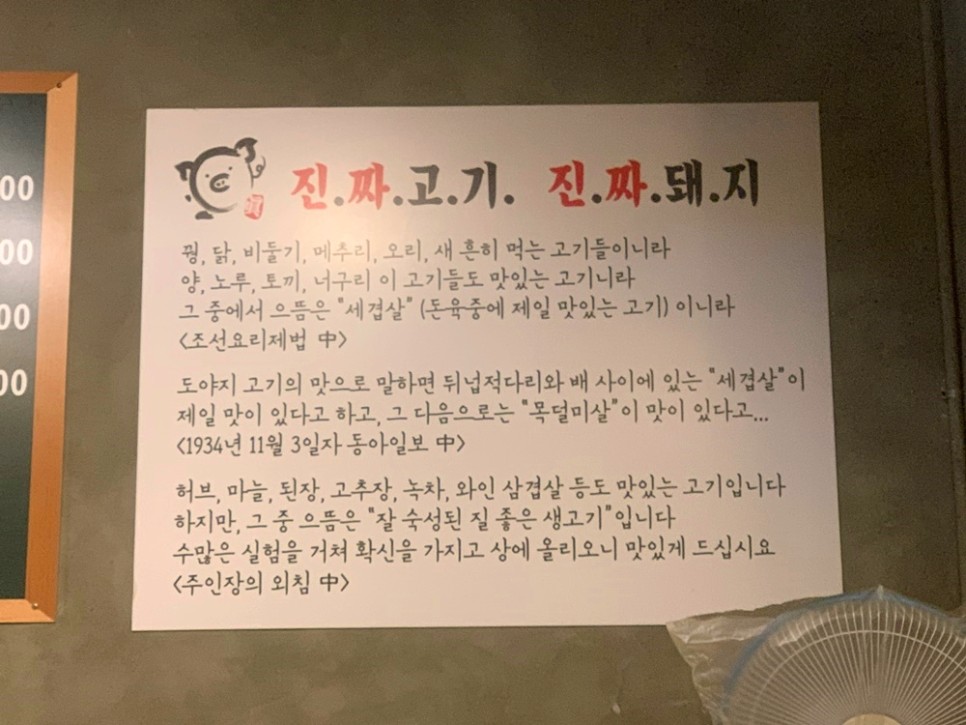 진.짜.고.기. 진.짜.돼.지
꿩, 닭, 비둘기, 메추리, 오리, 새 흔히 먹는 고기들이니라
양, 노루, 토끼, 너구리 이 고기들도 맛있는 고기니라
그 중에서 으뜸은 "세겹살" (돈육중에 제일 맛있는 고기) 이니라
<조선요리제법 中>
도야지 고기의 맛으로 말하면 뒤넙적다리와 배 사이에 있는 "세겹살"이
제일 맛이 있다고 하고, 그 다음으로는 "목덜미살"이 맛이 있다고...
<1934년 11월 3일자 동아일보 中>
허브, 마늘, 된장, 고추장, 녹차, 와인 삼겹살 등도 맛있는 고기입니다
하지만, 그 중 으뜸은 "잘 숙성된 질 좋은 생고기"입니다
수많은 실험을 거쳐 확신을 가지고 상에 올리오니 맛있게 드십시요
<주인장의 외침 中>
00
00
00
00